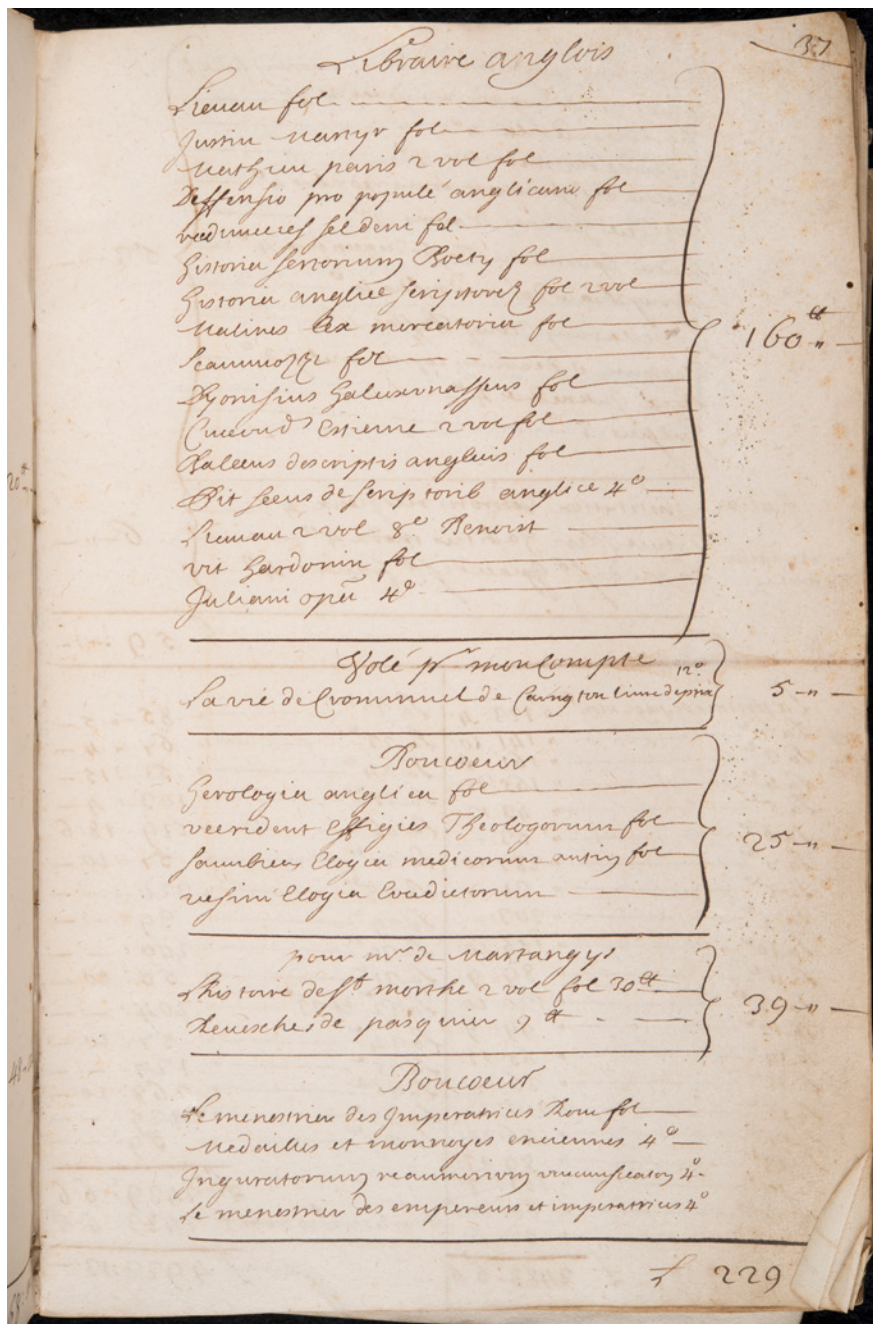 37
Libraire anglois
Lieuau fol
Justin Martyr fol
Mathieu paris 2 vol fol
Deffensio pro populé anglicani fol
seldeni fol
historia Boety fol
historia angliee scriptorez fol 2 vol
Malines lex mercatoria fol
Scammozzi fol
Dyonisius halicarnasseus fol
Estienne 2 vol fol
Baleeus descriptis angliuis fol
Pit seeus de scriptorib anglice 4º
160 tt "
Lieuau 2 vol 8º Benoist
vit hardouin fol
Juliani opera 4º
Volé pr mon Compte
La vie de Crommuel de livre de prix 12º
5 - "
Boucoeur
herologia anglica fol
effigies Theologorum fol
Elogia medicorum fol
Elogia
25 - "
pour mr de Martangys
Lhistoire de St marthe 2 vol fol 30 tt
Reuesches de pasquier 9 tt
39 - "
Boucoeur
Le menestrier des Imperatrices Rom fol
Medailles et monnoyes enciennes 4º
4º
Le menestrier des empereurs et imperatrices 4º
L 229
20 tt
48